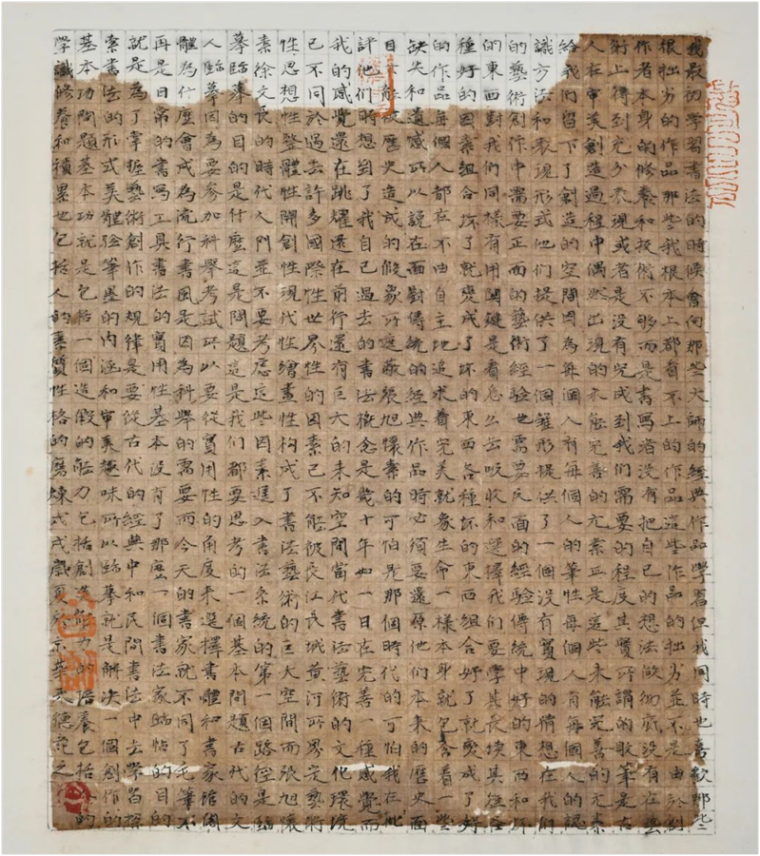 我最初學習書法的時候會向那些大師的經典作品學習但我同時也喜歡那些
很拙劣的作品那些我根本上都看不上的作品這些作品的拙劣並不是由於創
作者本身的修養和技術不夠而是書寫者没有把自己的想法做彻底没有在藝
術上得到充分表現或者是没有完成到我們需要的程度其實所謂的敗筆是古
人在審美創造過程中偶然出現的未能完善的元素正是這些未能完善的元素
給我們留下了創造的空間因為每個人有每個人的筆性每個人有每個人的認
識方法和表現形式他們提供了一個雛形提供了一個没有實現的猜想在我們
的藝術創作中需要正面的藝術經驗也需要反面的經驗傳統中好的東西和坏
的東西對我們同樣有用關鍵是看怎么去吸收和選擇我們要學其
種好的因素組合坏了就變成了坏的東西各種坏的東西組合好了就變成了好
的作品每個人都在不由自主地追求着完美就象生命一樣本身就包含着一些
缺失和遺憾所以說在面對傳統的經典作品時必須要還原他們本來的歷史面
目能歷史造成的假象所遮蔽張旭懷素的可怕是那個時代的可怕我在批
評他們時想到了我自己過去的書法概念是幾十年如一日在完善一種感覺而
我的感覺還在跳躍還在前行還有巨大的未知空間當代書法藝術的文化環境
已不同於過去許多國際性世界性的因素已不能被長江長城黄河所界定藝術
性思想性整體性開創性現代性繪畫性構成了書法藝術的巨大空間而張旭懷
素徐文長的時代人們並不要考慮這些因素進入書法系統的第一個路徑是臨
摹臨摹的目的是什麼這是問題這是我們都要思考的一個基本問題古代的文
人臨摹因為要參加科舉考試所以要從實用性的角度來選擇書體和書家館閣
體為什麼會成為流行書風是因為科舉的需要而今天的書家就不同了毛筆不
再是日常的書寫工具書法的實用性基本没有了那麼一個書法家臨帖的目的
就是為了掌握藝術創作的規律是要從古代的經典中和民間書法中去學習探
索書法的形式美體驗筆墨的内涵和審美趣味所以臨摹就是解決一個創作的
基本功問題基本功就是包括一個造假的能力包括創造能力的培養包括的
學識修養和積累也包括人的素質性格的磨煉